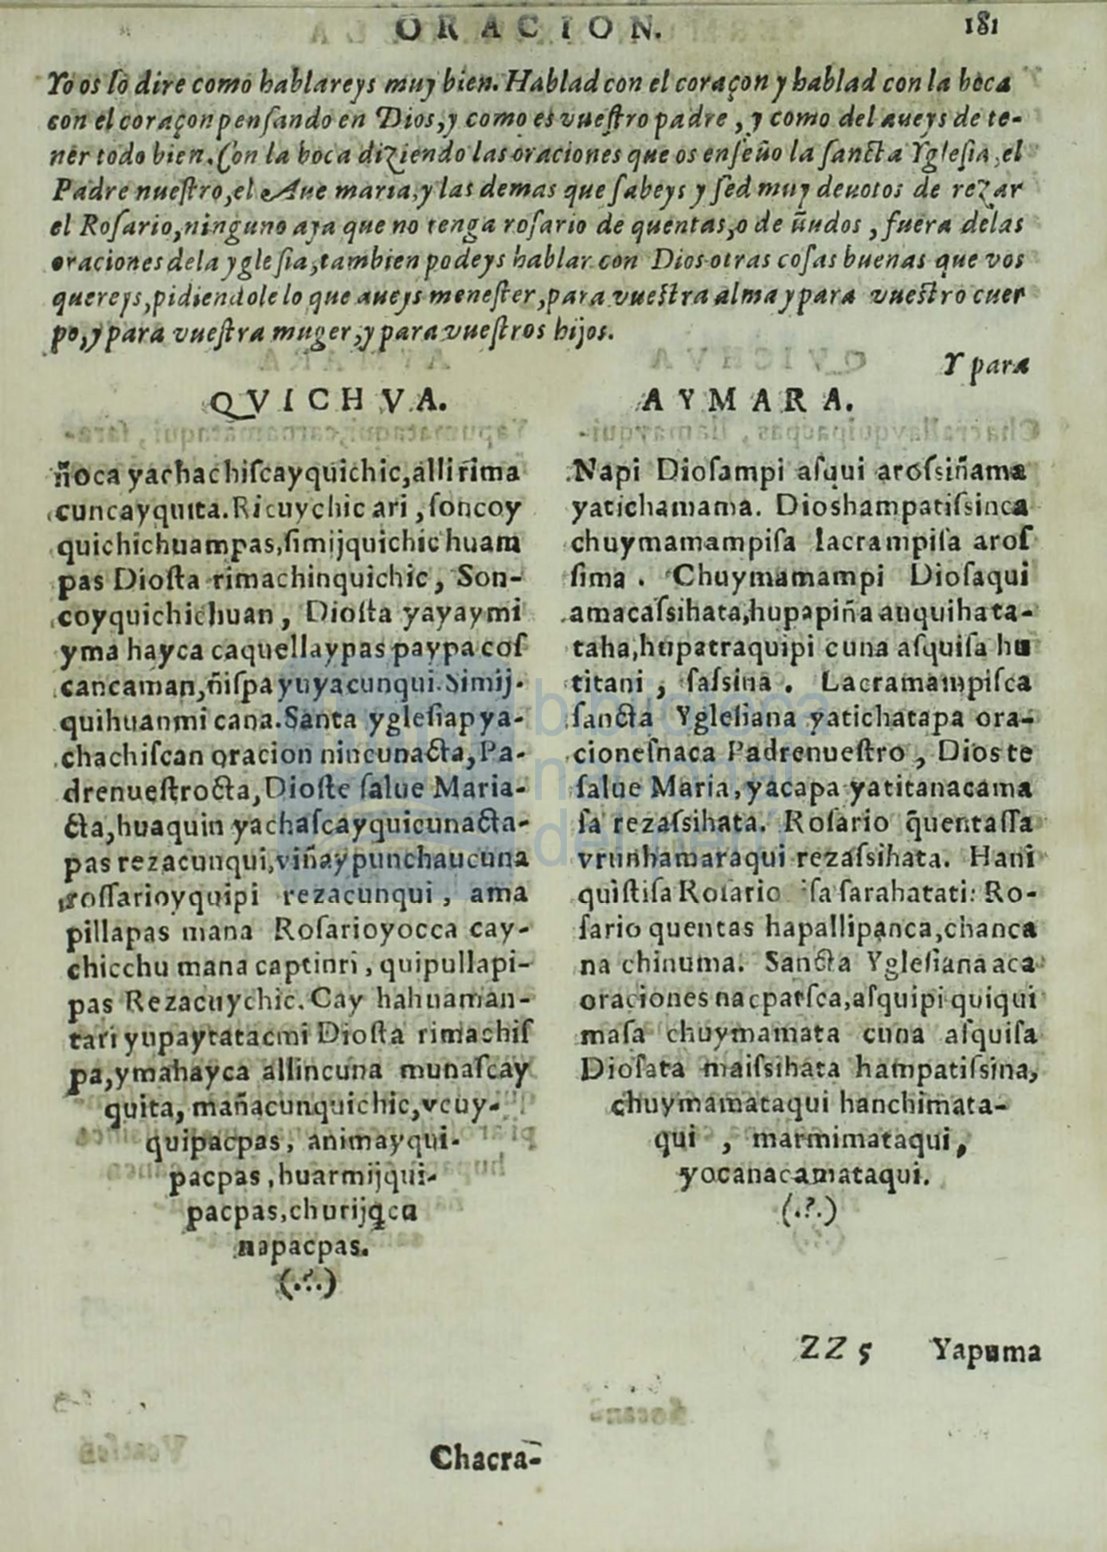 ORACION. 181
Yo os lo dire como hablareys muy bien. Hablad con el coraçon y hablad con la boca
con el coraçon pensando en Dios, y como es vuestro padre, y como del aueys de te-
ner todo bien. Con la boca diziendo las oraciones que os enseño la sancta Yglesia, el
Padre nuestro, el Aue maria, y las demas que sabeys y sed muy deuotos de rezar
el Rosario, ninguno aya que no tenga rosario de quentas, o de ñudos, fuera delas
oraciones dela yglesia, tambien podeys hablar con Dios otras cosas buenas que vos
quereys, pidiendole lo que aueys menester, para vuestra alma y para vuestro cuer
po, y para vuestra muger, y para vuestros hijos.
Y para
QVICHVA.
ñoca yachachiſcayquichic, allirima
cuncayquita. Ricuychic ari, ſoncoy
quichichuampas, ſimijquichic huam
pas Dioſta rimachinquichic, Son-
coyquichichuan, Dioſta yayaymi
yma hayca caquellaypas paypa coſ
cancaman, ñiſpa yuyacunqui. Simij-
quihuanmi cana. Santa ygleſiap ya-
chachiſcan oracion nincunacta, Pa-
drenueſtrocta, Dioſte ſalue Maria-
cta, huaquin yachaſcayquicunacta-
pas rezacunqui, viñaypunchaucuna
roſſarioyquipi rezacunqui, ama
pillapas mana Roſarioyocca cay-
chicchu mana captinri, quipullapi-
pas Rezacuychic. Cay hahuaman-
tari yupaytatacmi Dioſta rimachiſ
pa, ymahayca allincuna munaſcay
quita, mañacunquichic, vcuy-
quipacpas, animayqui-
pacpas, huarmijqui-
pacpas, churijq̃cu
napacpas.
(.?.)
AYMARA.
Napi Dioſampi aſqui aroſsiñama
yatichamama. Dioshampatiſsinca
chuymamampiſa lacrampiſa aroſ
ſima. Chuymamampi Dioſaqui
amacaſsihata, hupapiña auquihata-
taha, hupatraquipi cuna aſquiſa hu
titani, ſaſsina. Lacramampiſca
ſancta Ygleſiana yatichatapa ora-
cioneſnaca Padrenueſtro, Dios te
ſalue Maria, yacapa yatitanacama
ſa rezaſsihata. Roſario q̃entaſſa
vrunhamaraqui rezaſsihata. Hani
quiſtiſa Roſario ſa ſarahatati: Ro-
ſario quentas hapallipanca, chanca
na chinuma. Sancta Ygleſiana aca
oraciones nacpatſca, aſquipi quiqui
maſa chuymamata cuna aſquiſa
Dioſata maiſsihata hampatiſsina,
chuymamataqui hanchimata-
qui, marmimataqui,
yocanacamataqui.
(.?.)
ZZ 5 Yapuma
Chacra-